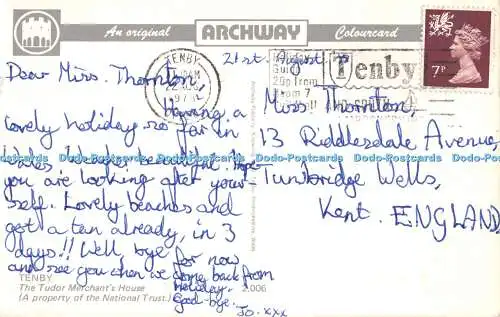 An original ARCHWAY Colourcard
TENBY
22 AUG
197
Guide
20p from
Tenby
7P
21st August
Dear Miss. Thornton,
Having a
lovely holiday so far in
Wales. Weather beautiful. Hope
you are looking after your-
self. Lovely beaches and
got a tan already, in 3
days!! Well, bye for now
and see you when we come back from
holiday.
Good-bye.
Jo. xxx
Miss Thornton,
13 Riddlesdale Avenue,
Tunbridge Wells,
Kent. ENGLAND
TENBY
The Tudor Merchant's House
(A property of the National Trust.)
2.006
Dodo-Postcards Dodo-Postcards Dodo-Postcards Dodo-Postcards Dodo-Postcards Dodo-Postcards